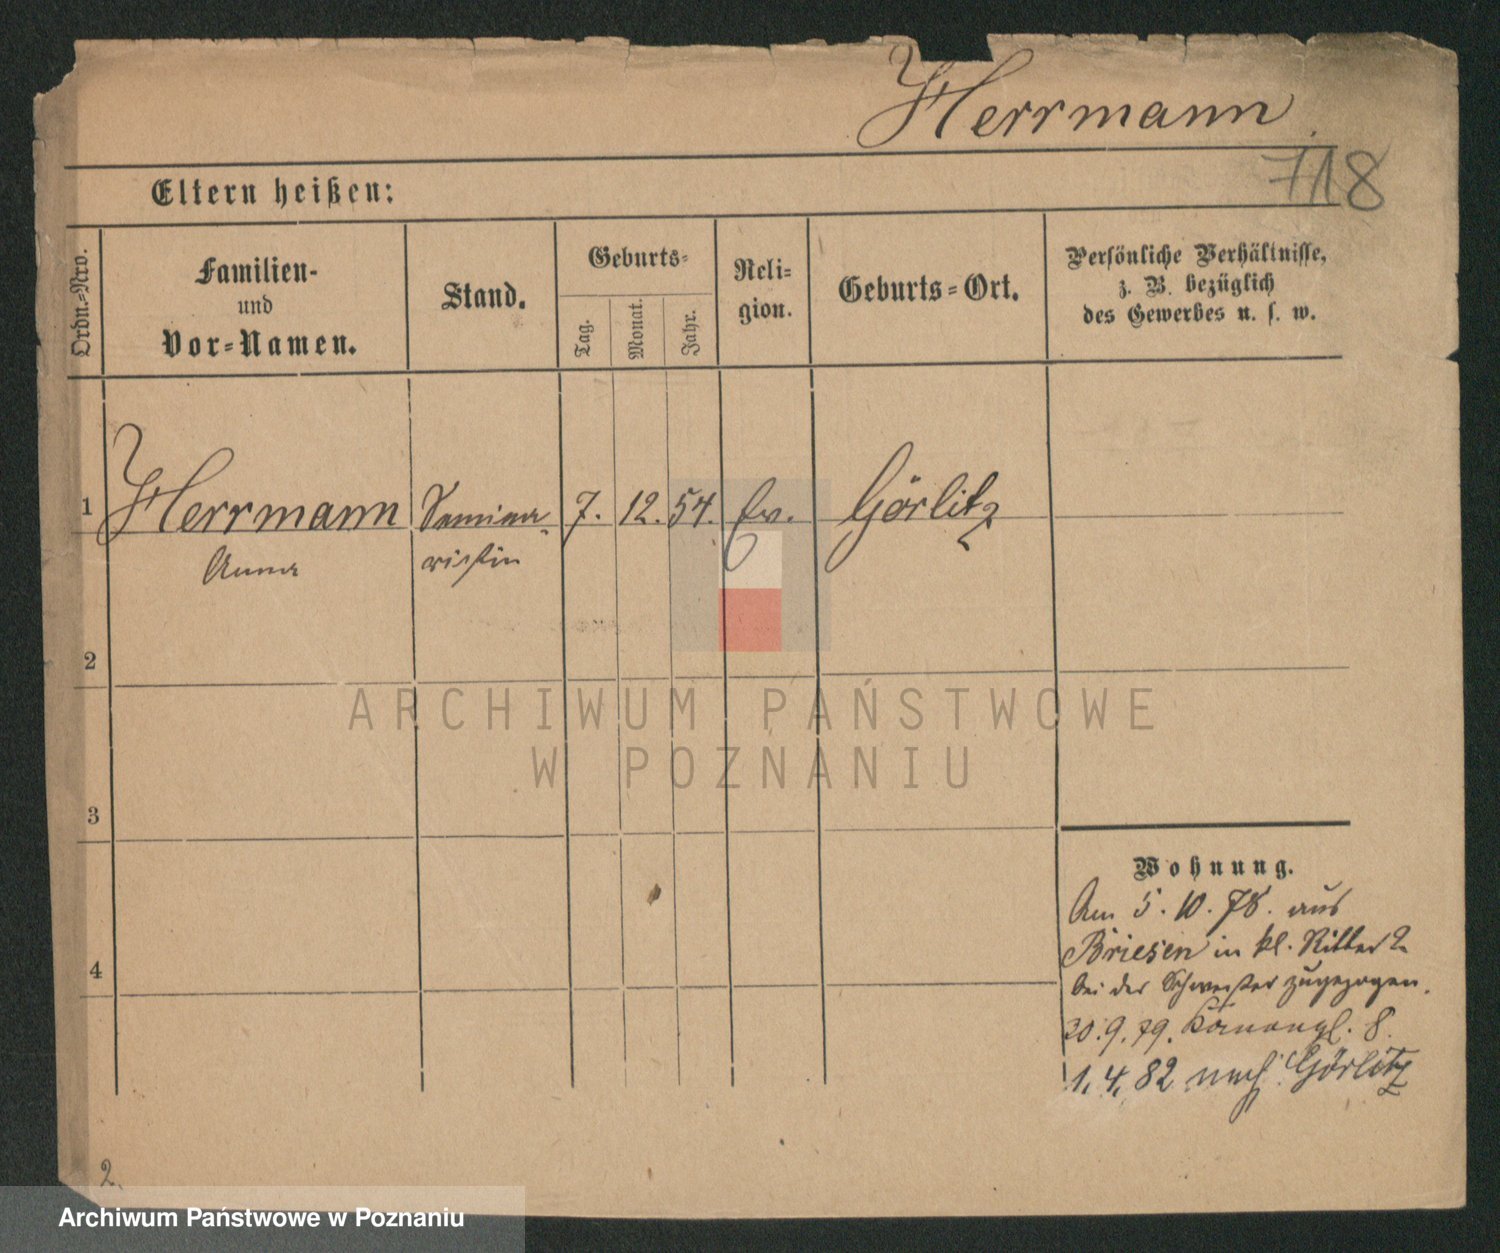 Herrmann.
718
Eltern heißen:
Ordn.-Nro.
Familien-
und
Vor-Namen.
Stand.
Geburts-
Tag.
Monat.
Jahr.
Reli-
gion.
Geburts-Ort.
Persönliche Verhältnisse,
z. B. bezüglich
des Gewerbes u. s. w.
1 Herrmann Semina- 7. 12. 54. Ev. Görlitz
Anna ristin
2
ARCHIWUM PAŃSTWOWE
W POZNANIU
3
Wohnung.
Am 5. 10. 78. aus
Briesen in kl. Ritter 2
bei der Schwester zugezogen.
4
30. 9. 79. 8.
1. 4. 82 nach Görlitz
2.
Archiwum Państwowe w Poznaniu